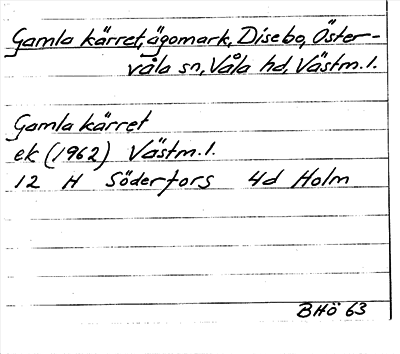 Gamla kärret, ägomark, Disebo, Öster-
våla sn, Våla hd, Västm.l.
Gamla kärret
ek (1962) Västm.l.
12 H Söderfors 4d Holm
BHö 63